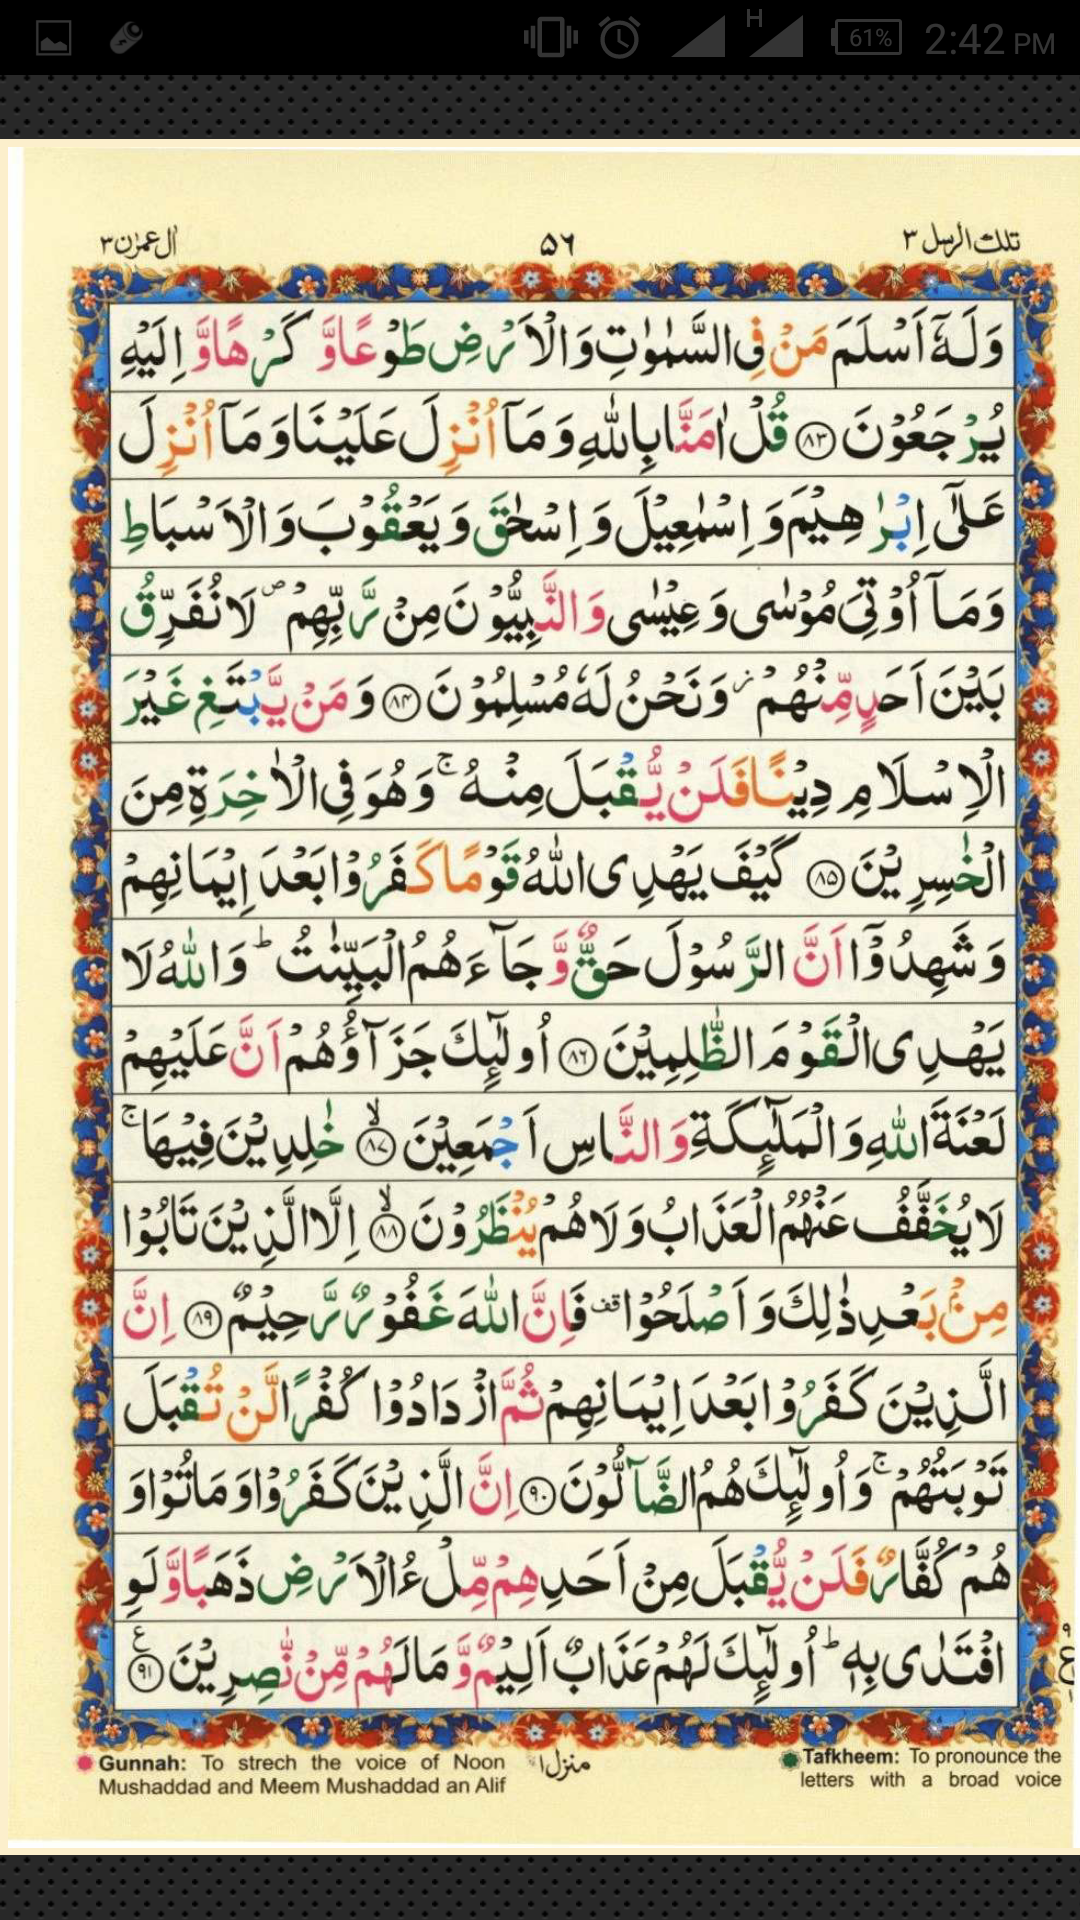 H 61% 2:42 PM
تلك الرسل ٣ ٥٦ اٰل عمرٰن ٣
وَلَهٗۤ اَسْلَمَ مَنْ فِی السَّمٰوٰتِ وَالْاَرْضِ طَوْعًا وَّ كَرْهًا وَّ اِلَیْهِ
یُرْجَعُوْنَ ﴿٨٣﴾ قُلْ اٰمَنَّا بِاللّٰهِ وَ مَاۤ اُنْزِلَ عَلَیْنَا وَ مَاۤ اُنْزِلَ
عَلٰۤی اِبْرٰهِیْمَ وَ اِسْمٰعِیْلَ وَ اِسْحٰقَ وَ یَعْقُوْبَ وَ الْاَسْبَاطِ
وَ مَاۤ اُوْتِیَ مُوْسٰی وَ عِیْسٰی وَ النَّبِیُّوْنَ مِنْ رَّبِّهِمْ ۪ لَا نُفَرِّقُ
بَیْنَ اَحَدٍ مِّنْهُمْ ؗ وَ نَحْنُ لَهٗ مُسْلِمُوْنَ ﴿٨٤﴾ وَ مَنْ یَّبْتَغِ غَیْرَ
الْاِسْلَامِ دِیْنًا فَلَنْ یُّقْبَلَ مِنْهُ ۚ وَ هُوَ فِی الْاٰخِرَةِ مِنَ
الْخٰسِرِیْنَ ﴿٨٥﴾ كَیْفَ یَهْدِی اللّٰهُ قَوْمًا كَفَرُوْا بَعْدَ اِیْمَانِهِمْ
وَ شَهِدُوْۤا اَنَّ الرَّسُوْلَ حَقٌّ وَّ جَآءَهُمُ الْبَیِّنٰتُ ؕ وَ اللّٰهُ لَا
یَهْدِی الْقَوْمَ الظّٰلِمِیْنَ ﴿٨٦﴾ اُولٰٓئِكَ جَزَآؤُهُمْ اَنَّ عَلَیْهِمْ
لَعْنَةَ اللّٰهِ وَ الْمَلٰٓئِكَةِ وَ النَّاسِ اَجْمَعِیْنَ ﴿٨٧﴾ ۙ خٰلِدِیْنَ فِیْهَا ۚ
لَا یُخَفَّفُ عَنْهُمُ الْعَذَابُ وَ لَا هُمْ یُنْظَرُوْنَ ﴿٨٨﴾ ۙ اِلَّا الَّذِیْنَ تَابُوْا
مِنْۢ بَعْدِ ذٰلِكَ وَ اَصْلَحُوْا قف فَاِنَّ اللّٰهَ غَفُوْرٌ رَّحِیْمٌ ﴿٨٩﴾ اِنَّ
الَّذِیْنَ كَفَرُوْا بَعْدَ اِیْمَانِهِمْ ثُمَّ ازْدَادُوْا كُفْرًا لَّنْ تُقْبَلَ
تَوْبَتُهُمْ ۚ وَ اُولٰٓئِكَ هُمُ الضَّآلُّوْنَ ﴿٩٠﴾ اِنَّ الَّذِیْنَ كَفَرُوْا وَ مَاتُوْا وَ
هُمْ كُفَّارٌ فَلَنْ یُّقْبَلَ مِنْ اَحَدِهِمْ مِّلْءُ الْاَرْضِ ذَهَبًا وَّ لَوِ
افْتَدٰی بِهٖ ؕ اُولٰٓئِكَ لَهُمْ عَذَابٌ اَلِیْمٌ وَّ مَا لَهُمْ مِّنْ نّٰصِرِیْنَ ﴿٩١﴾ ع
Gunnah: To strech the voice of Noon
Mushaddad and Meem Mushaddad an Alif
منزل ١
Tafkheem: To pronounce the
letters with a broad voice